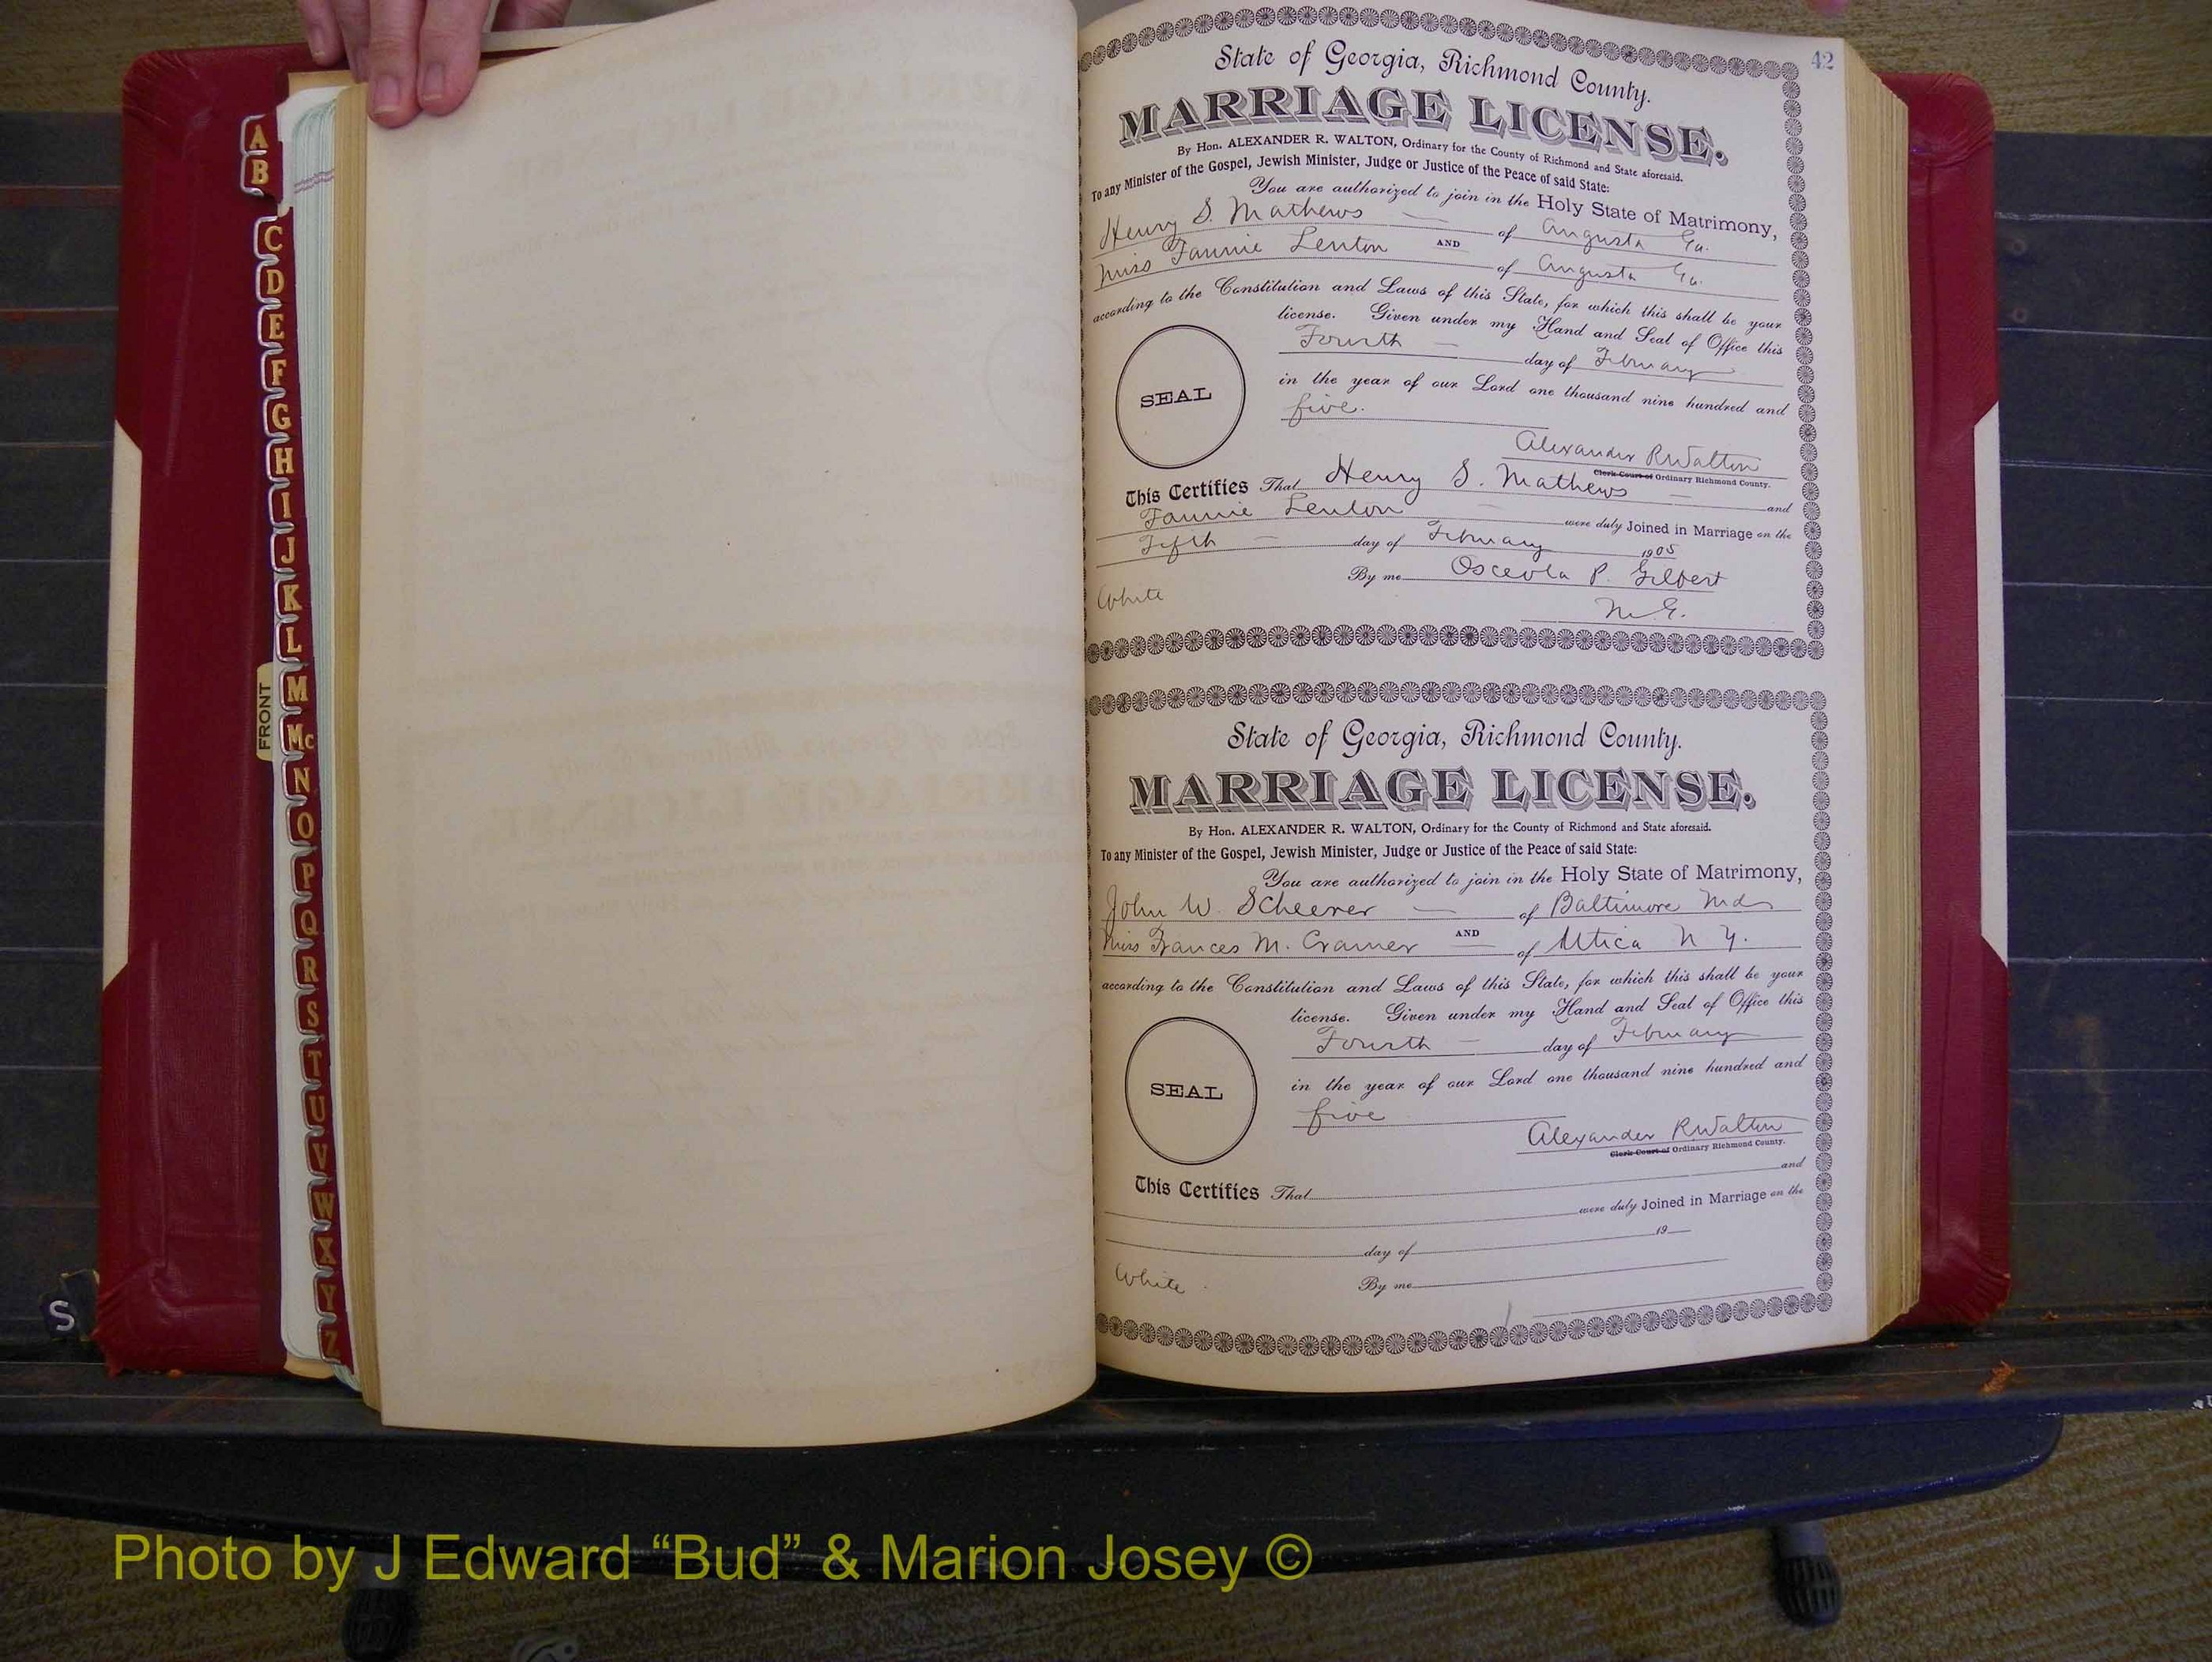 A
B
C
D
E
F
G
H
I
J
K
L
M
Mc
N
O
P
Q
R
S
T
U
V
W
X
Y
Z
FRONT
S
42
State of Georgia, Richmond County.
MARRIAGE LICENSE.
By Hon. ALEXANDER R. WALTON, Ordinary for the County of Richmond and State aforesaid.
To any Minister of the Gospel, Jewish Minister, Judge or Justice of the Peace of said State:
You are authorized to join in the Holy State of Matrimony,
Henry S. Mathews — of Augusta Ga.
AND
Miss Fannie Lenton of Augusta Ga.
according to the Constitution and Laws of this State, for which this shall be your
license. Given under my Hand and Seal of Office this
Fourth — day of February
SEAL
in the year of our Lord one thousand nine hundred and
five.
Alexander R Walton
Clerk Court of Ordinary Richmond County.
This Certifies That Henry S. Mathews — and
Fannie Lenton — were duly Joined in Marriage on the
Fifth — day of February 1905
By me Osceola P. Gilbert
White
M. G.
State of Georgia, Richmond County.
MARRIAGE LICENSE.
By Hon. ALEXANDER R. WALTON, Ordinary for the County of Richmond and State aforesaid.
To any Minister of the Gospel, Jewish Minister, Judge or Justice of the Peace of said State:
You are authorized to join in the Holy State of Matrimony,
John W. Scheerer — of Baltimore Md
AND
Miss Frances M. Cramer — of Utica N Y.
according to the Constitution and Laws of this State, for which this shall be your
license. Given under my Hand and Seal of Office this
Fourth — day of February
SEAL
in the year of our Lord one thousand nine hundred and
five
Alexander R Walton
Clerk Court of Ordinary Richmond County.
This Certifies That and
were duly Joined in Marriage on the
day of 19
White
By me
Photo by J Edward “Bud” & Marion Josey ©